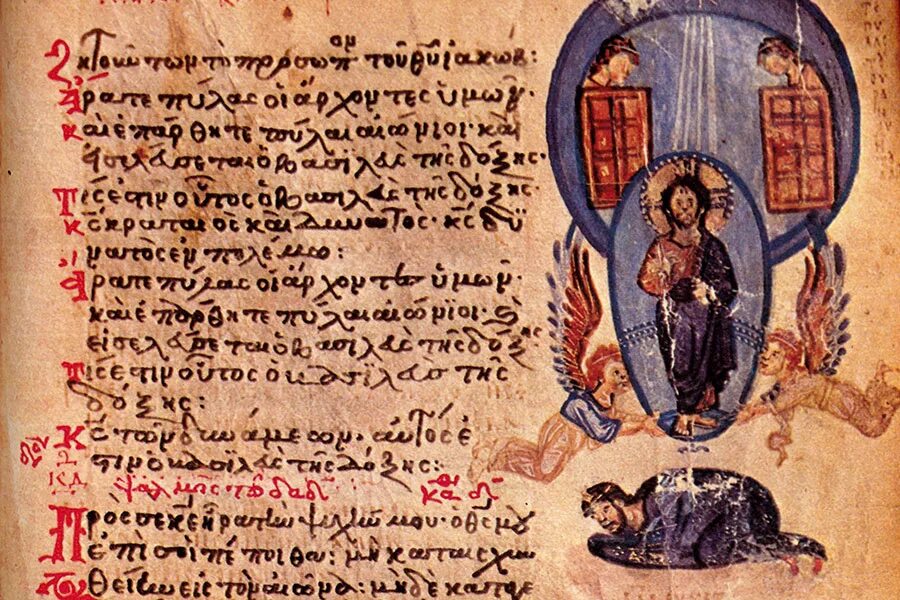 Ζητούντων τὸ πρόσωπον τοῦ θῦ ϊακώβ:
Ἄρατε πύλας οἱ ἄρχοντες ὑμῶν·
καὶ ἐπάρθητε πύλαι αἰώνιοι· καὶ
εἰσελεύσεται ὁ βασιλεὺς τῆς δόξης·
Τίς ἐστιν οὗτος ὁ βασιλεὺς τῆς δόξης·
κς κραταιὸς καὶ δυνατός· κς δυ
νατὸς ἐν πολέμω:
Ἄρατε πύλας οἱ ἄρχοντες ὑμῶν·
καὶ ἐπάρθητε πύλαι αἰώνϊοι· καὶ
εἰσελεύσεται ὁ βασιλεὺς τῆς δόξης
Τίς ἐστιν οὗτος ὁ βασιλεὺς τῆς
δόξης:
Κς τῶν δυνάμεων· αὐτός ἐ
στιν ὁ βασιλεὺς τῆς δόξης:
ΚΔ ψαλμὸς τῶ δαδ
Πρὸς σὲ κε ἦρα τὴν ψυχήν μου· ὁ θς μου
ἐπὶ σοὶ πέποιθα· μὴ καταισχυν
θείην εἰς τὸν αἰῶνα: μηδὲ καταγε